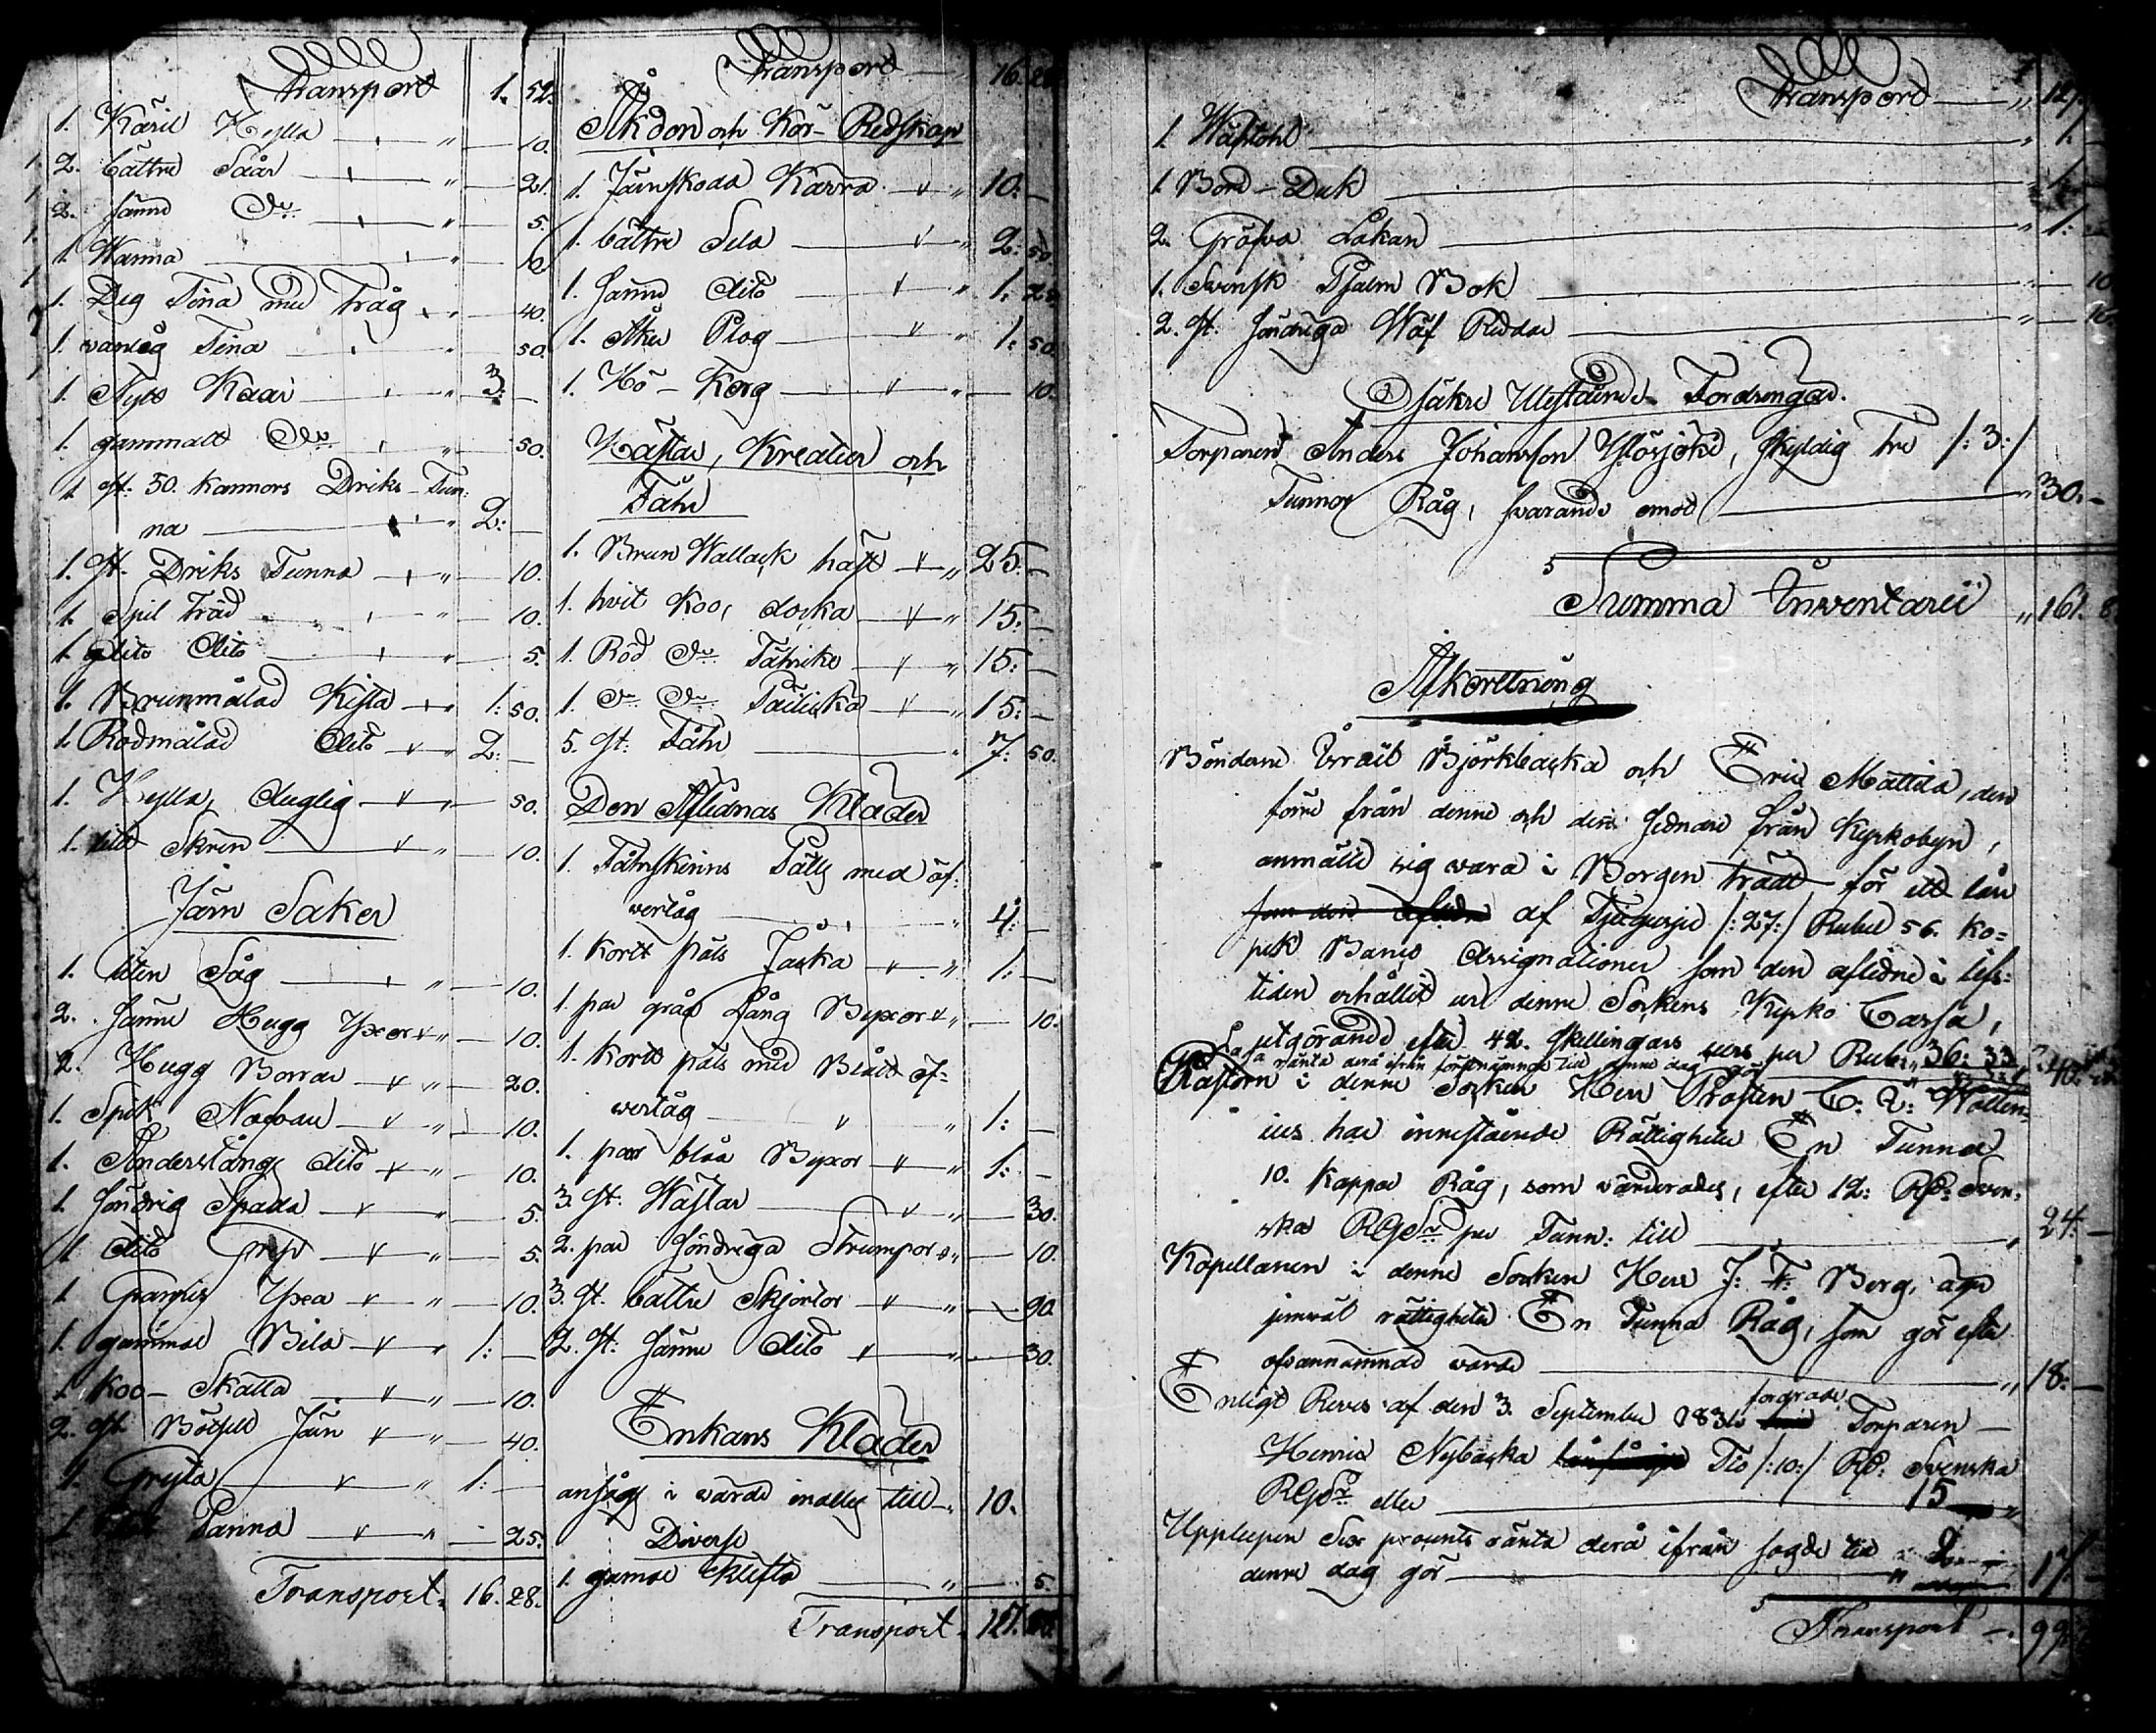 Transport 1. 52.
1. Käril Hylla " 10.
2. bättre Såar " 21.
2. sämre Do " 5.
1. Wanna "
1. Deg Tina med tråg " 40.
1. Tina " 50.
1. Nytt Kaar " 3: —
1. gammalt Do " 50.
1. st. 30. kannors Driks-Tun-
na " 2: —
1. st. Driks Tunna " 10.
1. Spil träd " 10.
1. dito dito " 5.
1. Brunmålad Kista " 1: 50.
1. Rödmålad dito " 2: —
1. Hylla, duglig " 50.
1. dito Skrin " 10.
Järn Saker
1. liten Såg " 10.
2. sämre Hugg Yxor " 10.
2. Hugg Borrar " 20.
1. Spik Nafvare " 10.
1. Anderstång dito " 10.
1. söndrig Spada " 5.
1. dito Grepe " 5.
1. Yxa " 10.
1. gammal Bila " 1: —
1. Koo-Skälla " 10.
2. st. Järn " 40.
1. Gryta " 1: —
1. Panna " 25.
Transport. 16. 28.
Transport 16. 28.
Åkdon och Kör-Redskap
1. Järnskoda Kärra " 10: —
1. bättre Sela " 2: 50.
1. sämre dito " 1: 25.
1. Åker Plog " 1: 50.
1. Hö-Korg " 10.
Hästar, Kreatur och
Fähr
1. Brun Wallack häst " 25: —
1. hvit Koo, docka " 15: —
1. Röd Do Tähtike " 15: —
1. Do Do " 15: —
5. st: Fåhr " 7: 50.
Den Aflidnas Kläder
1. Fåhrskinns Päls med öf-
vertåg " 4: —
1. kort päls Jacka " 1: —
1. par gråa Lång Byxor " 10.
1. kort päls med Blått öf-
vertåg " 1: —
1. par blåa Byxor " 1: —
3. st. Wästar " 30.
2. par söndriga Strumpor " 10.
3. st. bättre Skjortor " 90.
2. st: sämre dito " 30.
Enkans Kläder
ansågs i värde inalles till " 10.
Diverse
1. gamal Klifta " 5.
Transport. 127.
Transport " 127.
1. Wäfstohl " 1. —
1. Bord-Duk " 1. —
2. Gröfva Lakan " 1: —
1. Svensk Psalm Bok " 10
2. st. söndriga Wäf Reddar " 10.
Osäkre Utestående Fordringar.
Torparen Anders Johansson Ylösjoki, skyldig tre /:3:/
Tunnor Råg, svarande emot " 30. —
Summa Inventarii " 161. 8
Afkortning
Bönderne Israël Björkbacka och Eric Mattila, den
förre från denne och den sednare från Kyrkobyn,
anmälte sig vara i Borgen trädt för ett lån
som den aflidne af Tjugusju /:27:/ Rubel 56. ko-
pek Banco Assignationer som den aflidne i lifs-
tiden erhållit ur denne Sockens Kyrko Cassa,
utgörande efter 42. Skillingars curs per Rub: " 36: 33
ränta derå ifrån förstnämnde tid denne dag gör " 40:
Pastorn i denne Socken Herr Prosten Wallen-
ius har innestående Rättigheter En Tunna
10. kappar Råg, som värderades, efter 12: Rd: Sven-
ska RGds per Tunn: till " 24: —
Kapellanen i denne Socken Herr J: F: Berg, äger
jemväl rättigheter En Tunna Råg, som gör efter
ofvannämnde värde " 18: —
Enligt Revers af den 3. September 183 fordrade Torparen
Henric Nybacka Tio /:10:/ Rd: Svenska
RGds eller 15 "
Upplupen Sex procents ränta derå ifrån sagde tid
denne dag gör " 17: —
Transport — 99.